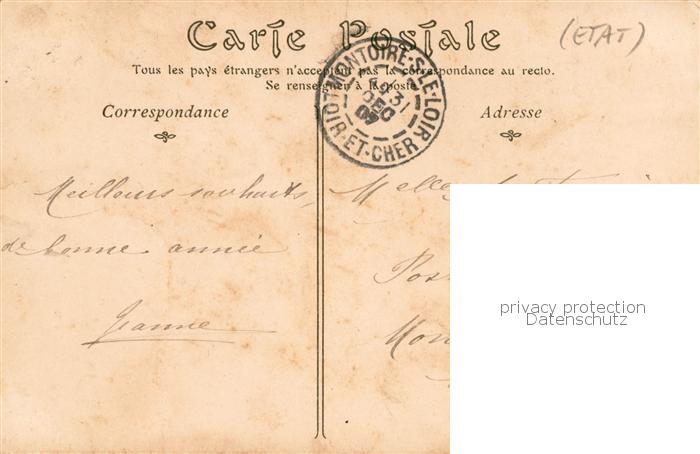 Carte Postale
(ETAT)
Tous les pays étrangers n'acceptent pas la correspondance au recto.
Se renseigner à la poste
MONTOIRE-S-LE-LOIR
31
DEC
07
LOIR-ET-CHER
Correspondance
Adresse
Meilleurs souhaits,
de bonne année
Jeanne
Melle
Pos
Mon
privacy protection
Datenschutz